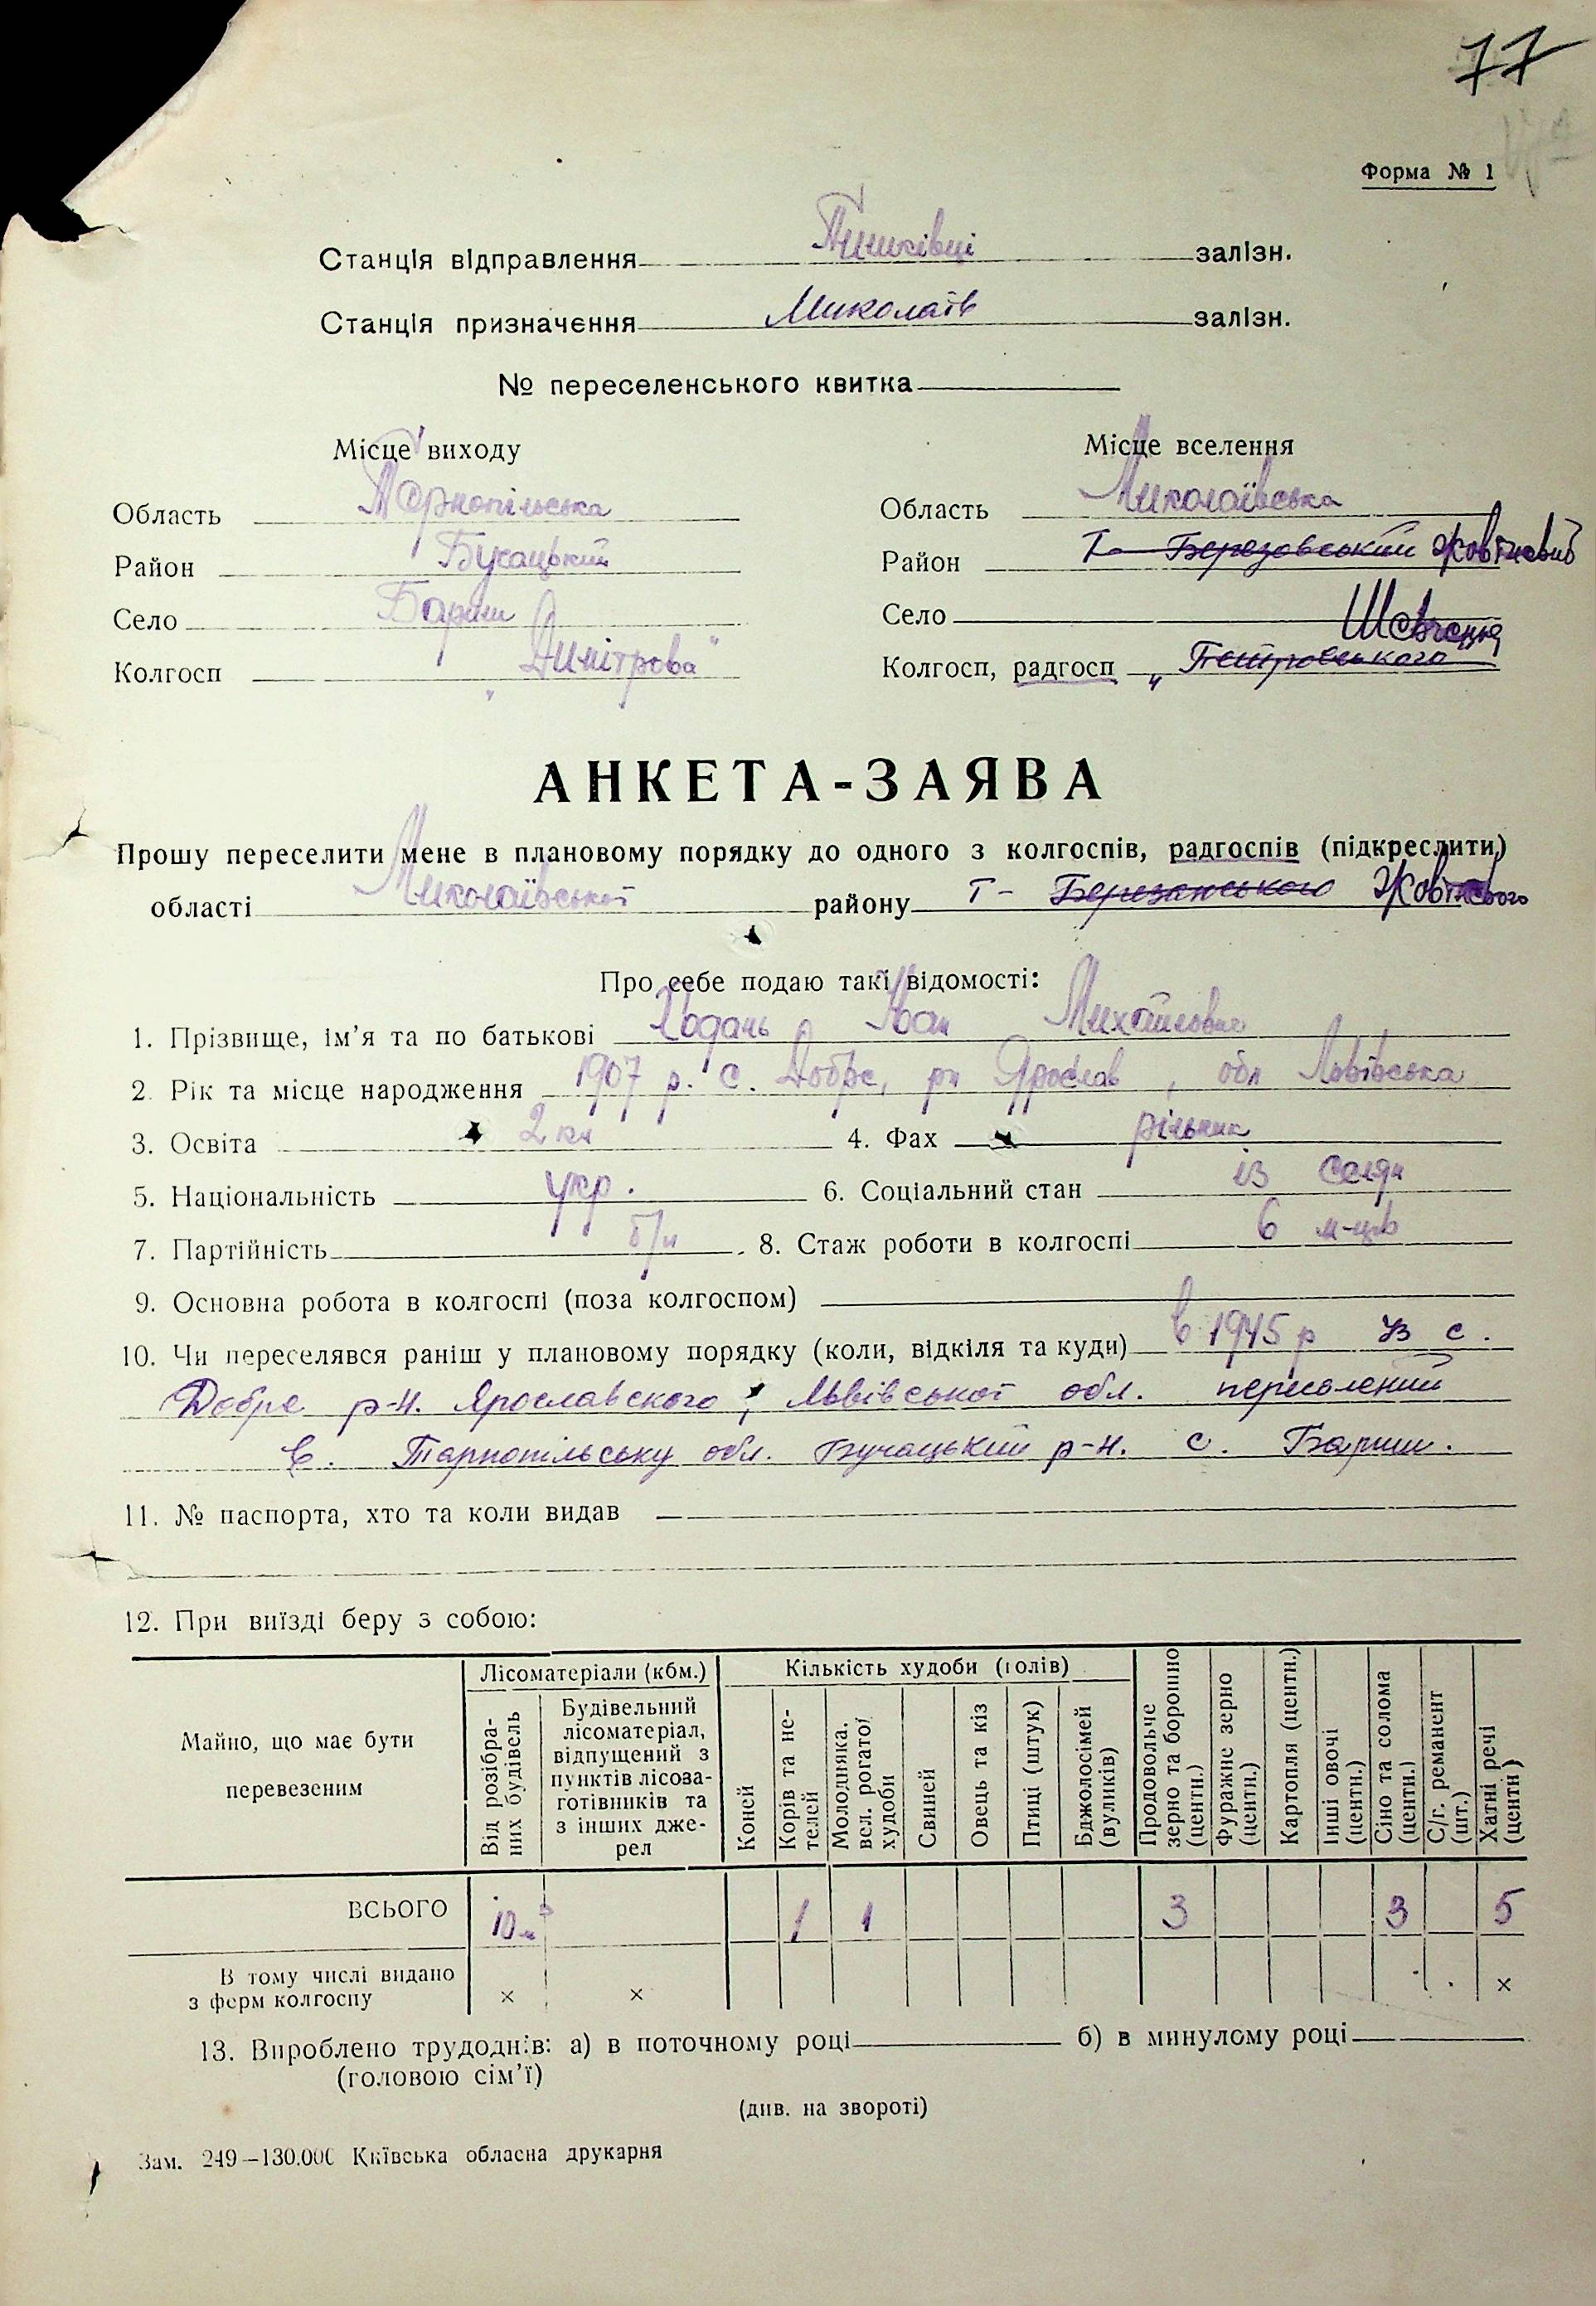 77
Форма № 1
Станція відправлення Пишківці залізн.
Станція призначення Миколаїв залізн.
№ переселенського квитка
Місце виходу Місце вселення
Область Тернопільська Область Миколаївська
Район Бучацький Район Т- Березовський Жовтневий
Село Бариш Село
Шевченка
Колгосп "Димітрова" Колгосп, радгосп „ Петровського
АНКЕТА-ЗАЯВА
Прошу переселити мене в плановому порядку до одного з колгоспів, радгоспів (підкреслити)
області Миколаївської району Т- Березанського Жовтневого
Про себе подаю такі відомості:
1. Прізвище, ім’я та по батькові Іван Михайлович
2. Рік та місце народження 1907 р. с. Добре, рн Ярослав, обл Львівська
3. Освіта 2 кл 4. Фах рільник
5. Національність укр. 6. Соціальний стан із селян
7. Партійність б/п 8. Стаж роботи в колгоспі 6 м-ців
9. Основна робота в колгоспі (поза колгоспом)
10. Чи переселявся раніш у плановому порядку (коли, відкіля та куди) в 1945 р із с.
Добре р-н. Ярославского, Львівської обл. переселений
в. Тарнопільську обл. Бучацький р-н. с. Бариш.
11. № паспорта, хто та коли видав
12. При виїзді беру з собою:
Майно, що має бути перевезеним
Лісоматеріали (кбм.)
Від розібраних будівель
Будівельний лісоматеріал, відпущений з пунктів лісозаготівників та з інших джерел
Кількість худоби (голів)
Коней
Корів та нетелей
Молодняка, вел. рогатої худоби
Свиней
Овець та кіз
Птиці (штук)
Бджолосімей (вуликів)
Продовольче зерно та борошно (центн.)
Фуражне зерно (центн.)
Картопля (центн.)
Інші овочі (центн.)
Сіно та солома (центн.)
С/г. реманент (шт.)
Хатні речі (центн)
ВСЬОГО 10 м³ 1 1 3 3 5
В тому числі видано
з ферм колгоспу × × ×
13. Вироблено трудоднів: а) в поточному році б) в минулому році
(головою сім’ї)
(див. на звороті)
Зам. 249—130.000 Київська обласна друкарня